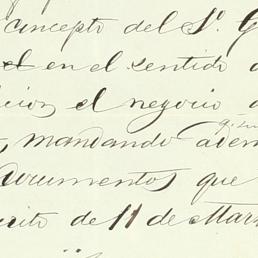 concepto del Sr. G
en el sentido d
el negocio d
, mandando adem
documentos que
crito de 11 de Marz